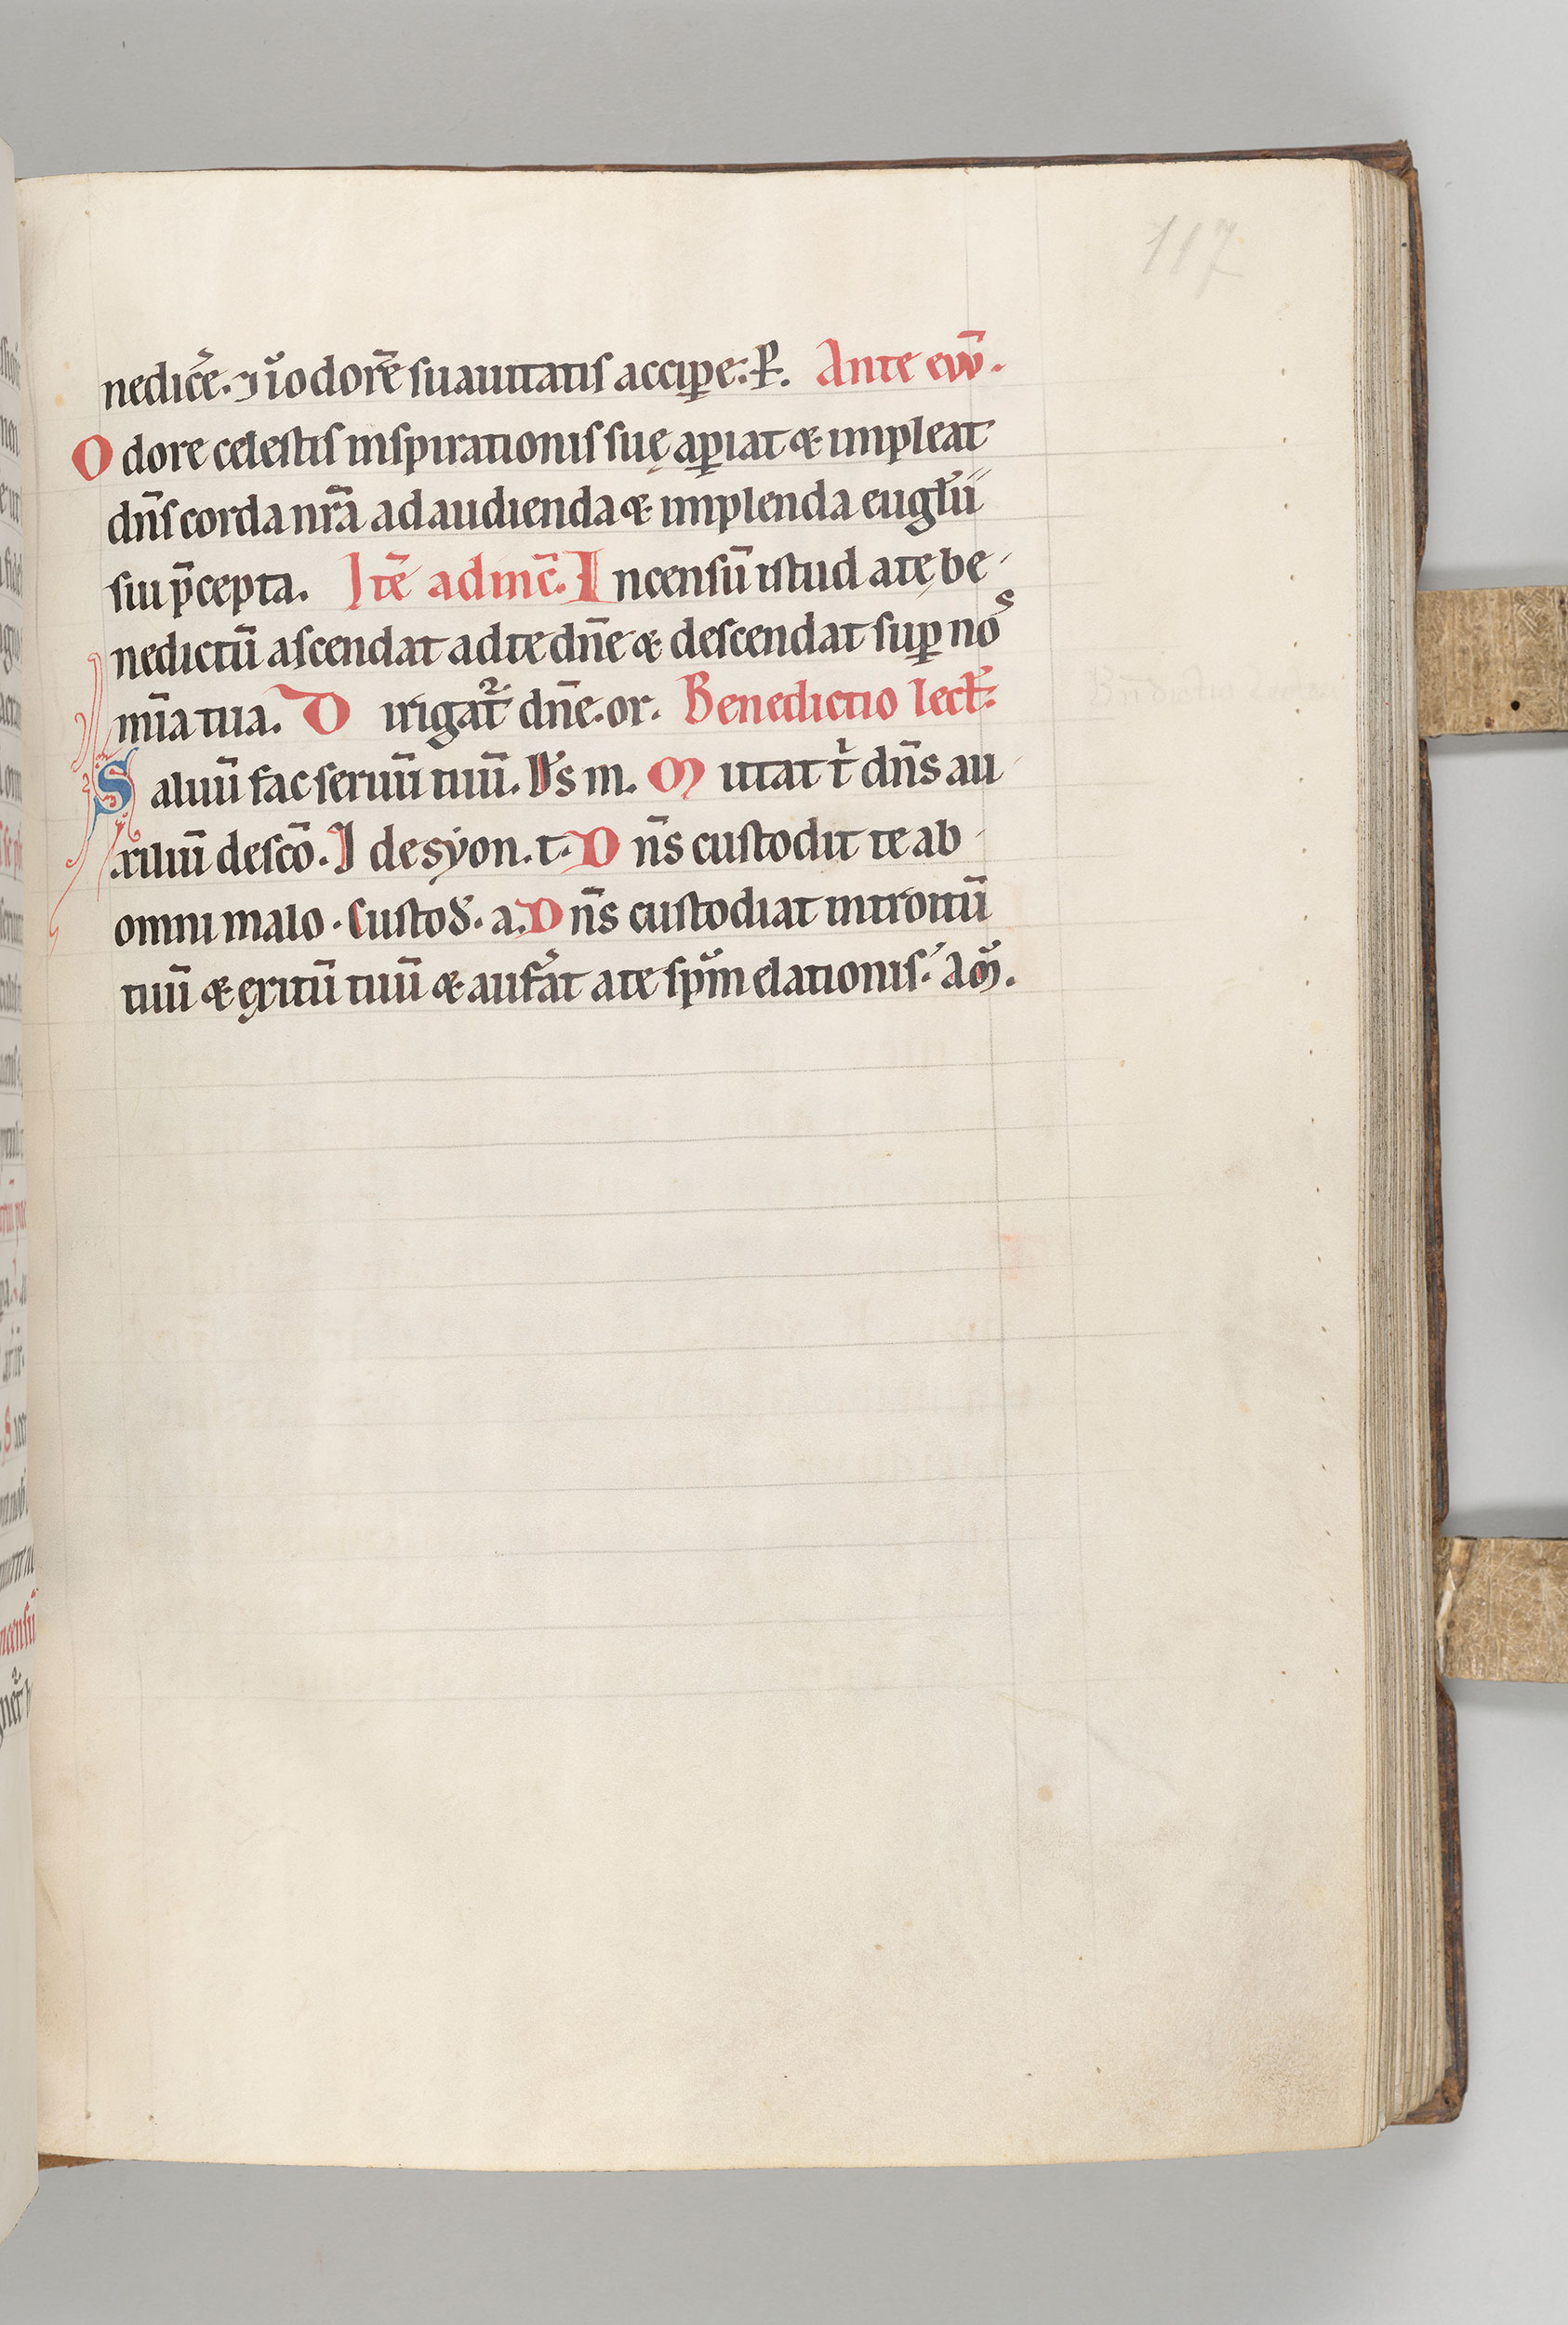 117
nediċe. ⁊ ı̆ odorē suauitatis accipe: P. Ante ew̄.
Odore celestis inspirationis suę aꝑiat & impleat
dn̄s corda nr̄a ad audienda & implenda eugľii
sui p̄cepta. Itē ad inc̄. Incensū istud a te be-
nedictū ascendat ad te dn̄e & descendat suꝑ nos
mīa tua. Dirigat᷑ dn̄e. or. Benedictio lect̄.
Saluū fac seruū tuū. Ds m. Mittat t̍ dn̄s au-
xiliū de sc̄o. I de syon. t. Dn̄s custodit te ab
omni malo. Custod̄. a. Dn̄s custodiat introitū
tuū & exitū tuū & aufāt a te sp̄m elationis. Am̄.